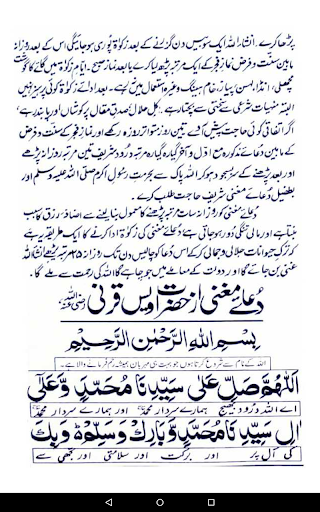 پڑھا کرے۔ انشاء اللہ ایک سو بیس دن گزرنے کے بعد زکوٰۃ پوری ہو جائیگی اس کے بعد روزانہ
مابین سنت و فرض نماز فجر کے ایک مرتبہ پڑھ لیا کرے یا بعد نماز صبح۔ ایام زکوٰۃ میں گائے کا گوشت
مچھلی، انڈا، لہسن، پیاز، خام، ہینگ وغیرہ استعمال میں نہیں۔ بعد ادائے زکوٰۃ کوئی پرہیز نہیں
البتہ منہیات شرعی سے سختی سے بچتا رہے۔ اکل حلال، صدق مقال پر کوشاں اور پابند رہے،
اگر اتفاقی کوئی حاجت پیش آئے تین روز متواتر روزہ رکھے اور نماز فجر کے سنت و فرض
کے مابین دعائے مذکورہ مع اول و آخر گیارہ گیارہ مرتبہ درود شریف تین مرتبہ روزانہ پڑھے
اور بعد پڑھنے کے سر بسجود ہو کر اللہ پاک سے بحرمت رسول اکرم صلی اللہ علیہ وسلم اور
بطفیل دعائے مغنی شریف حاجت طلب کرے۔
دعائے مغنی کو روزانہ سات مرتبہ پڑھنے کا معمول بنا لینے سے اضافہ رزق کا سبب
بنتا ہے اور مالی تنگی دور ہو جاتی ہے دعائے مغنی کی زکوٰۃ ادا کرنے کا ایک طریقہ یہ ہے
کہ ترک حیوانات جلالی و جمالی کر کے اس دعا کو چالیس دن تک روزانہ ۲۵ مرتبہ پڑھے انشاء اللہ
غنی بن جائے گا اور دولت کے معاملے میں جو چاہے گا اللہ کی رحمت سے ملے گا۔
دعائے مغنی از حضرت اویس قرنی رضی اللہ عنہ
بِسْمِ اللهِ الرَّحْمٰنِ الرَّحِيْمِ
اللہ کے نام سے شروع کرتا ہوں جو بہت ہی مہربان ہمیشہ رحم فرمانے والا ہے۔
اَللّٰهُمَّ صَلِّ عَلٰى سَيِّدِنَا مُحَمَّدٍ وَّعَلٰٓى
اے اللہ درود بھیج ہمارے سردار محمد اور ہمارے سردار محمد
اٰلِ سَيِّدِنَا مُحَمَّدٍ وَّبَارِكْ وَسَلِّمْ وَبِكَ
کی آل پر اور برکت اور سلامتی اور تجھی سے